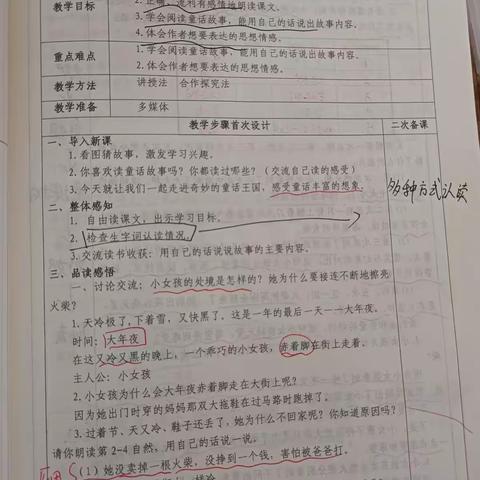 教学目标
2. 正确、流利有感情地朗读课文。
3. 学会阅读童话故事，能用自己的话说出故事内容。
4. 体会作者想要表达的思想情感。
重点难点
1. 学会阅读童话故事，能用自己的话说出故事内容。
2. 体会作者想要表达的思想情感。
教学方法 讲授法 合作探究法
教学准备 多媒体
教学步骤首次设计 二次备课
一、导入新课
1. 看图猜故事，激发学习兴趣。
2. 你喜欢读童话故事吗？你都读过哪些？（交流自己读的感受）
3. 今天就让我们一起走进奇妙的童话王国，感受童话丰富的想象。
多种方式认读
二、整体感知
1. 自由读课文，出示学习目标。
2. 检查生字词认读情况。
3. 交流读书收获：用自己的话说说故事的主要内容。
三、品读感悟
一、讨论交流：小女孩的处境是怎样的？她为什么要接连不断地擦亮
火柴？
1. 天冷极了，下着雪，又快黑了，这是一年的最后一天——大年夜。
时间：大年夜
在这又冷又黑的晚上，一个乖巧的小女孩，赤着脚在街上走着。
主人公：小女孩
2. 小女孩为什么会大年夜赤着脚走在大街上呢？
因为她出门时穿的妈妈那双大拖鞋在过马路时跑掉了。
3. 过着节、天又冷、鞋子还丢了，她为什么不回家呢？你知道原因吗？
请你朗读第 2-4 自然，用自己的话说一说。
（1）她没卖掉一根火柴，没挣到一个钱，害怕被爸爸打。